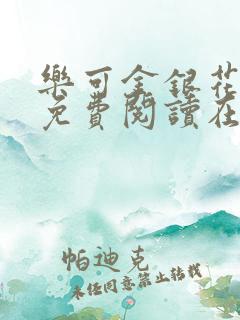 樂可金銀花
免費閱讀在
帕迪克
未任同意禁止转载